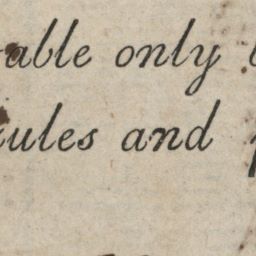 able only
ules and